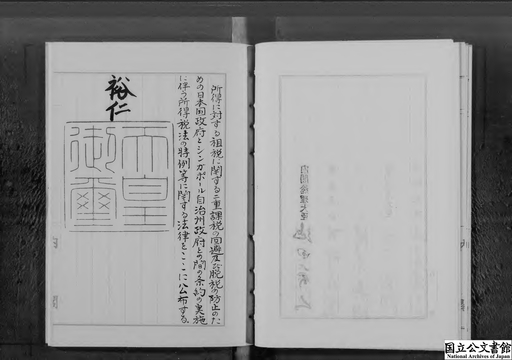 所得に対する租税に関する二重課税の回避及び脱税の防止のた
めの日本国政府とシンガポール自治州政府との間の条約の実施
に伴う所得税法の特例等に関する法律をここに公布する。
裕仁
天皇
御璽
内閣総理大臣
国立公文書館
National Archives of Japan